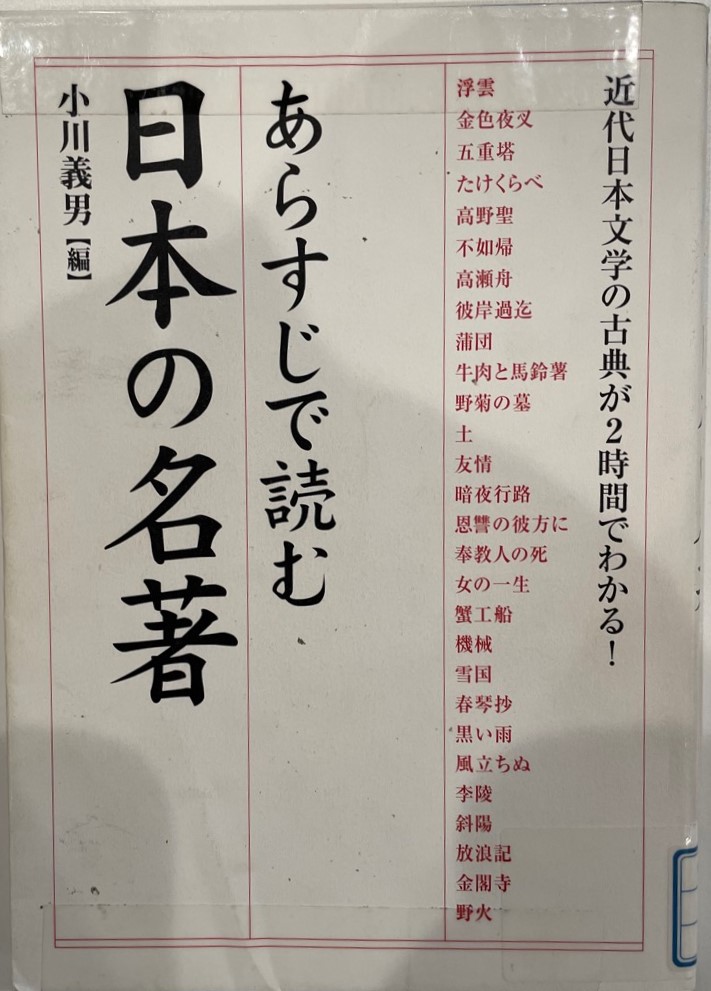 近代日本文学の古典が2時間でわかる！
浮雲
金色夜叉
五重塔
たけくらべ
高野聖
不如帰
高瀬舟
彼岸過迄
蒲団
牛肉と馬鈴薯
野菊の墓
土
友情
暗夜行路
恩讐の彼方に
奉教人の死
女の一生
蟹工船
機械
雪国
春琴抄
黒い雨
風立ちぬ
李陵
斜陽
放浪記
金閣寺
野火
あらすじで読む
日本の名著
小川義男【編】